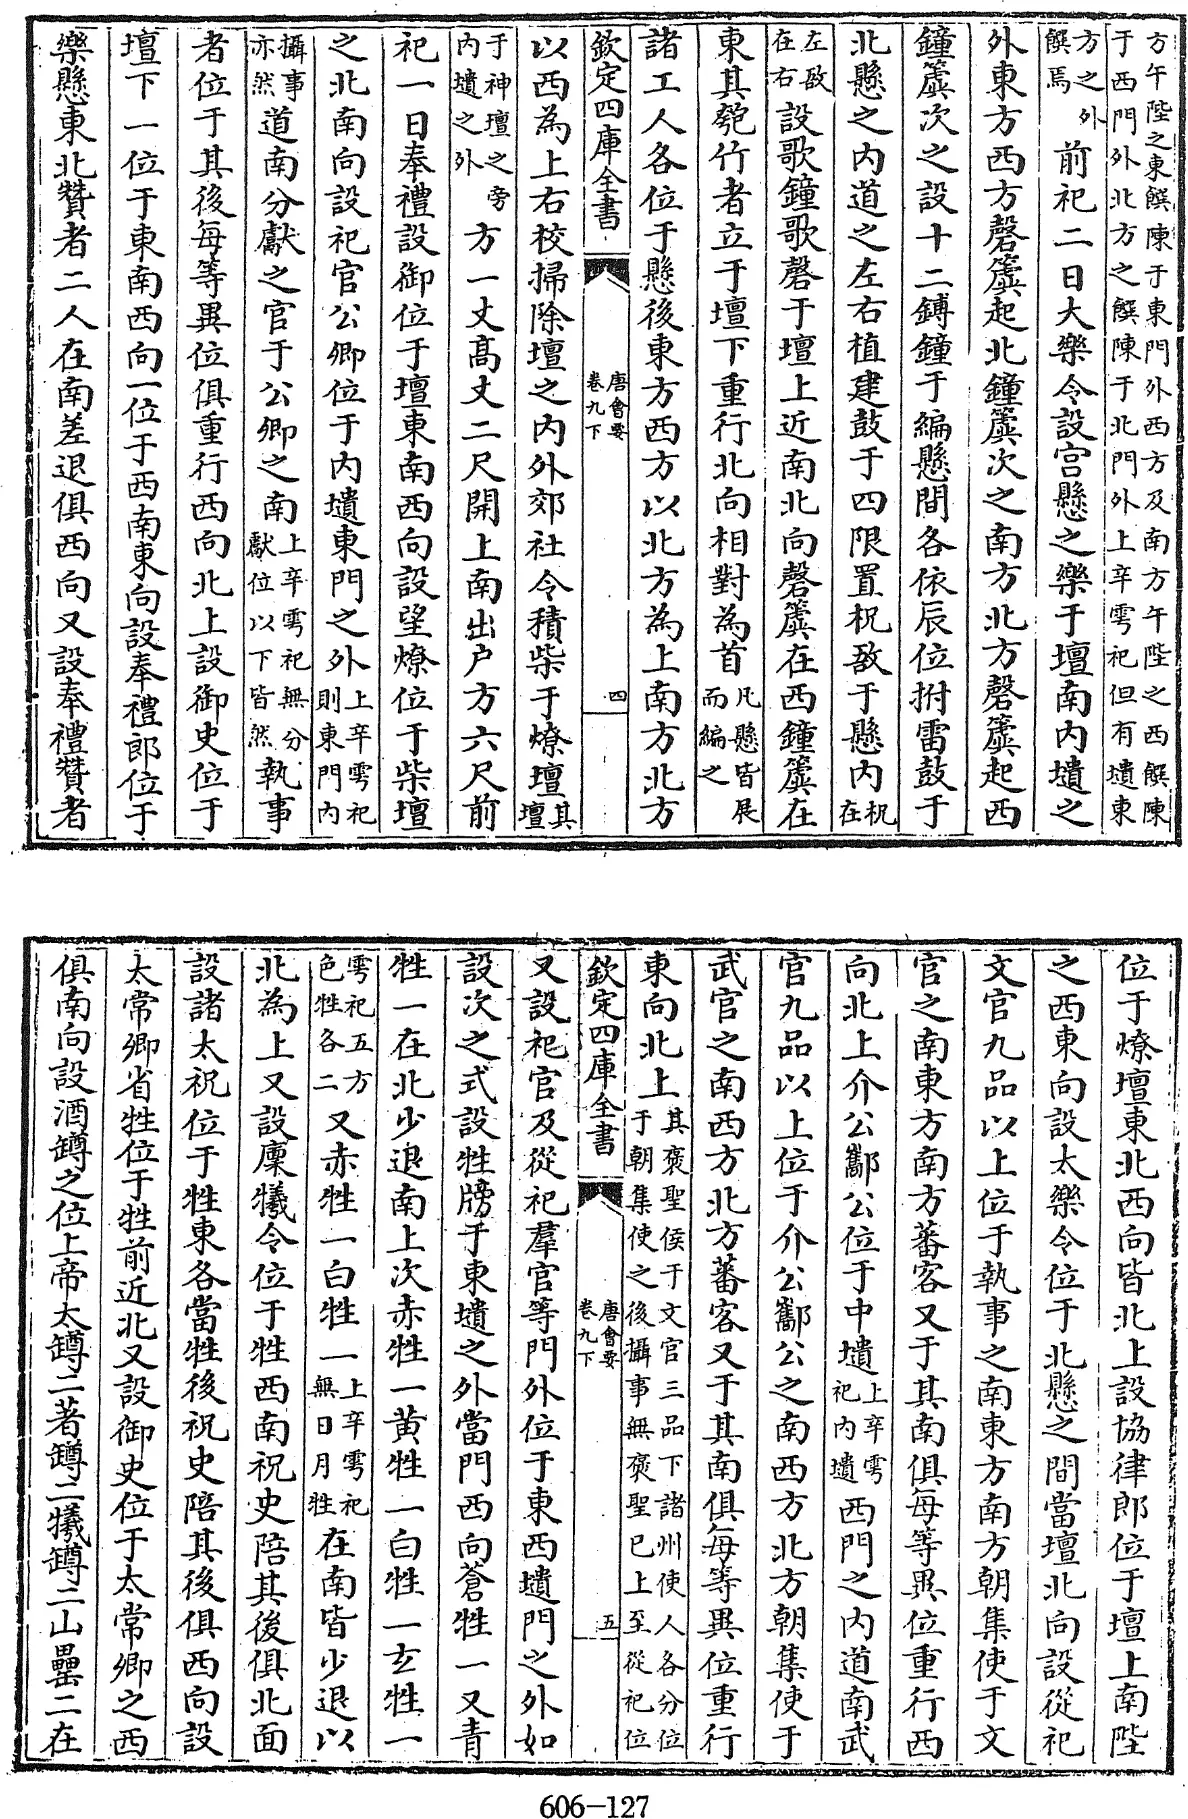 方午陛之東饌陳于東門外西方及南方午陛之西饌陳
于西門外北方之饌陳于北門外上辛雩祀但有壝東
方之外饌焉前祀二日大樂令設宫懸之樂于壇南内壝之
外東方西方磬簴起北鐘簴次之南方北方磬簴起西
鐘簴次之設十二鎛鐘于編懸間各依辰位拊雷鼓于
北懸之内道之左右植建鼓于四限置柷敔于懸内柷在
左敔在右設歌鐘歌磬于壇上近南北向磬簴在西鐘簴在
東其匏竹者立于壇下重行北向相對為首凡懸皆展而編之
諸工人各位于懸後東方西方以北方為上南方北方
欽定四庫全書 唐會要 卷九下 四
以西為上右校掃除壇之内外郊社令積柴于燎壇其壇
于神壇之旁内壝之外方一丈髙丈二尺開上南出户方六尺前
祀一日奉禮設御位于壇東南西向設望燎位于柴壇
之北南向設祀官公卿位于内壝東門之外上辛雩祀則東門内
攝事亦然道南分獻之官于公卿之南上辛雩祀無分獻位以下皆然執事
者位于其後每等異位俱重行西向北上設御史位于
壇下一位于東南西向一位于西南東向設奉禮郎位于
樂懸東北贊者二人在南差退俱西向又設奉禮贊者
位于燎壇東北西向皆北上設協律郎位于壇上南陛
之西東向設太樂令位于北懸之間當壇北向設從祀
文官九品以上位于執事之南東方南方朝集使于文
官之南東方南方蕃客又于其南俱每等異位重行西
向北上介公酅公位于中壝上辛雩祀内壝西門之内道南武
官九品以上位于介公酅公之南西方北方朝集使于
武官之南西方北方蕃客又于其南俱每等異位重行
東向北上其褒聖侯于文官三品下諸州使人各分位于朝集使之後攝事無褒聖已上至從祀位
欽定四庫全書 唐會要 卷九下 五
又設祀官及從祀羣官等門外位于東西壝門之外如
設次之式設牲牓于東壝之外當門西向蒼牲一又青
牲一在北少退南上次赤牲一黄牲一白牲一玄牲一
雩祀五方色牲各二又赤牲一白牲一上辛雩祀無日月牲在南皆少退以
北為上又設廩犧令位于牲西南祝史陪其後俱北面
設諸太祝位于牲東各當牲後祝史陪其後俱西向設
太常卿省牲位于牲前近北又設御史位于太常卿之西
俱南向設酒罇之位上帝太罇二著罇二犧罇二山罍二在
606-127